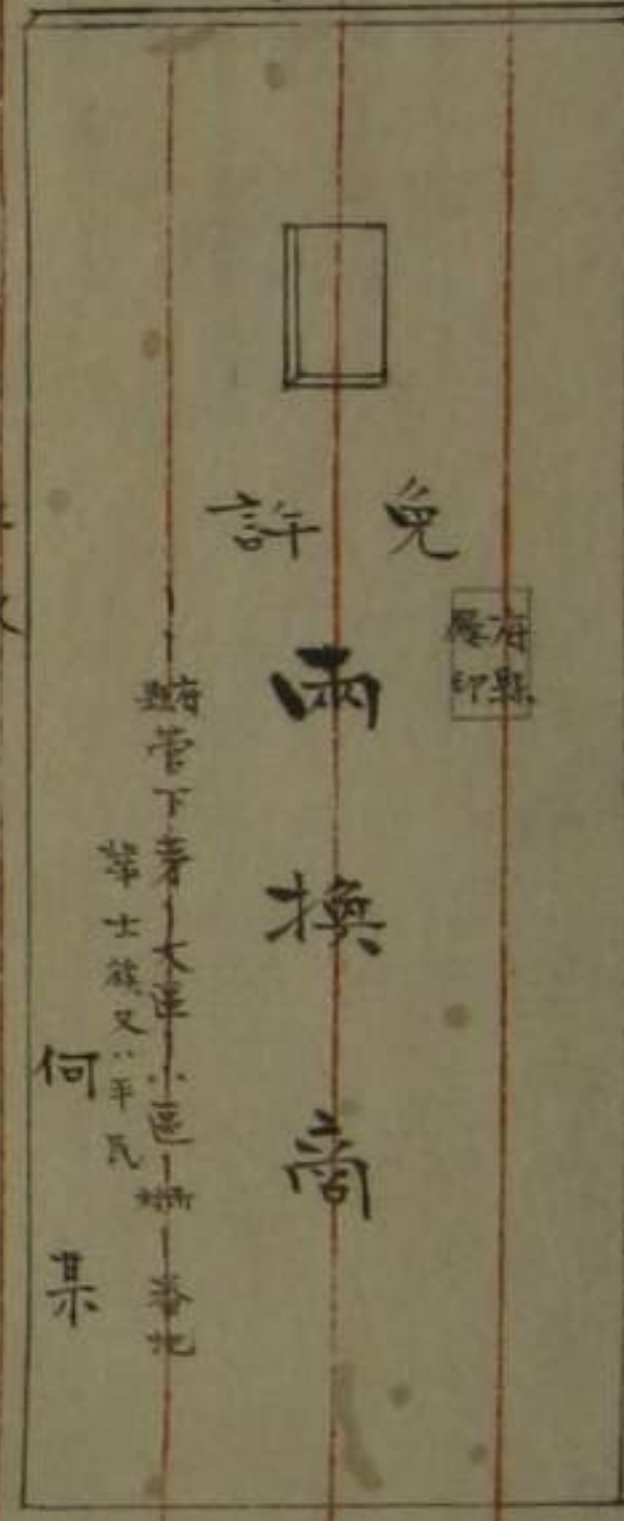 免許
府縣
廳印
兩換商
府縣管下第一大區一小區一町村一番地
華士族又ハ平民
何某